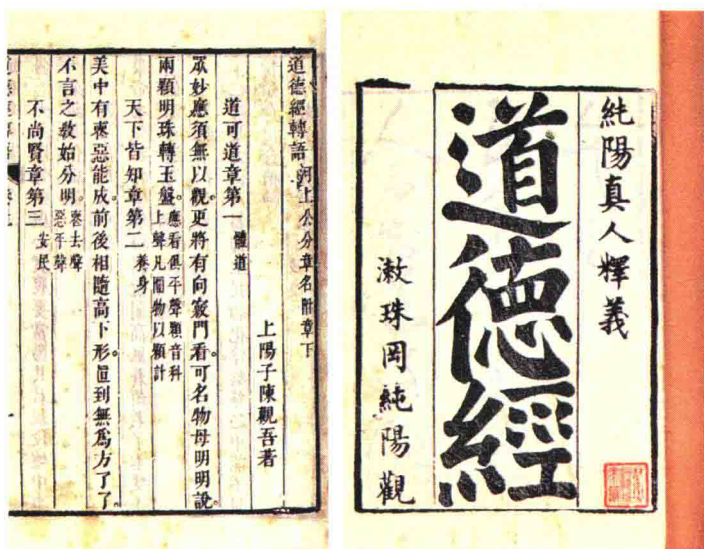 純陽真人釋義
道德經
漱珠岡純陽觀
道德經轉語 河上公分章名附章下
上陽子陳觀吾著
道可道章第一 體道
眾妙應須無以觀更將有向竅門看可名物母明明說
兩顆明珠轉玉盤 應看俱平聲顆音科
上聲凡圓物以顆計
天下皆知章第二 養身
美中有惡惡能成前後相隨高下形直到無為方了了
不言之教始分明 惡去聲
惡平聲
不尚賢章第三 安民